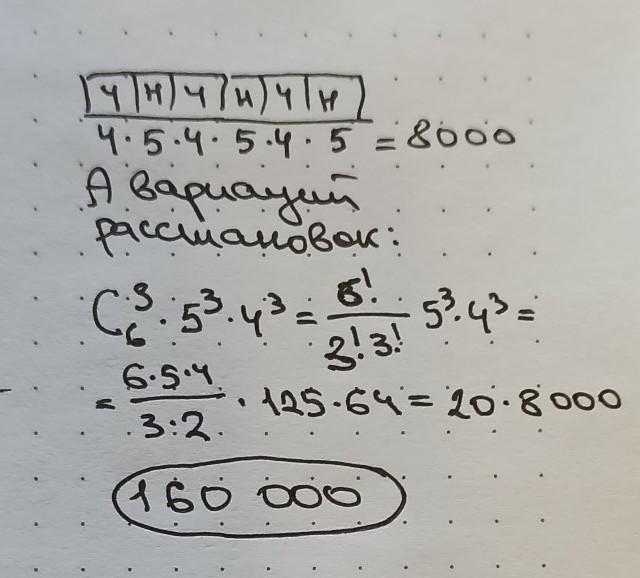 ч н ч н ч н
4·5·4·5·4·5 = 8000
А вариаций
расстановок:
C₆³·5³·4³ = 6!/3!3! 5³·4³ =
= 6·5·4/3·2 · 125·64 = 20·8000
160 000